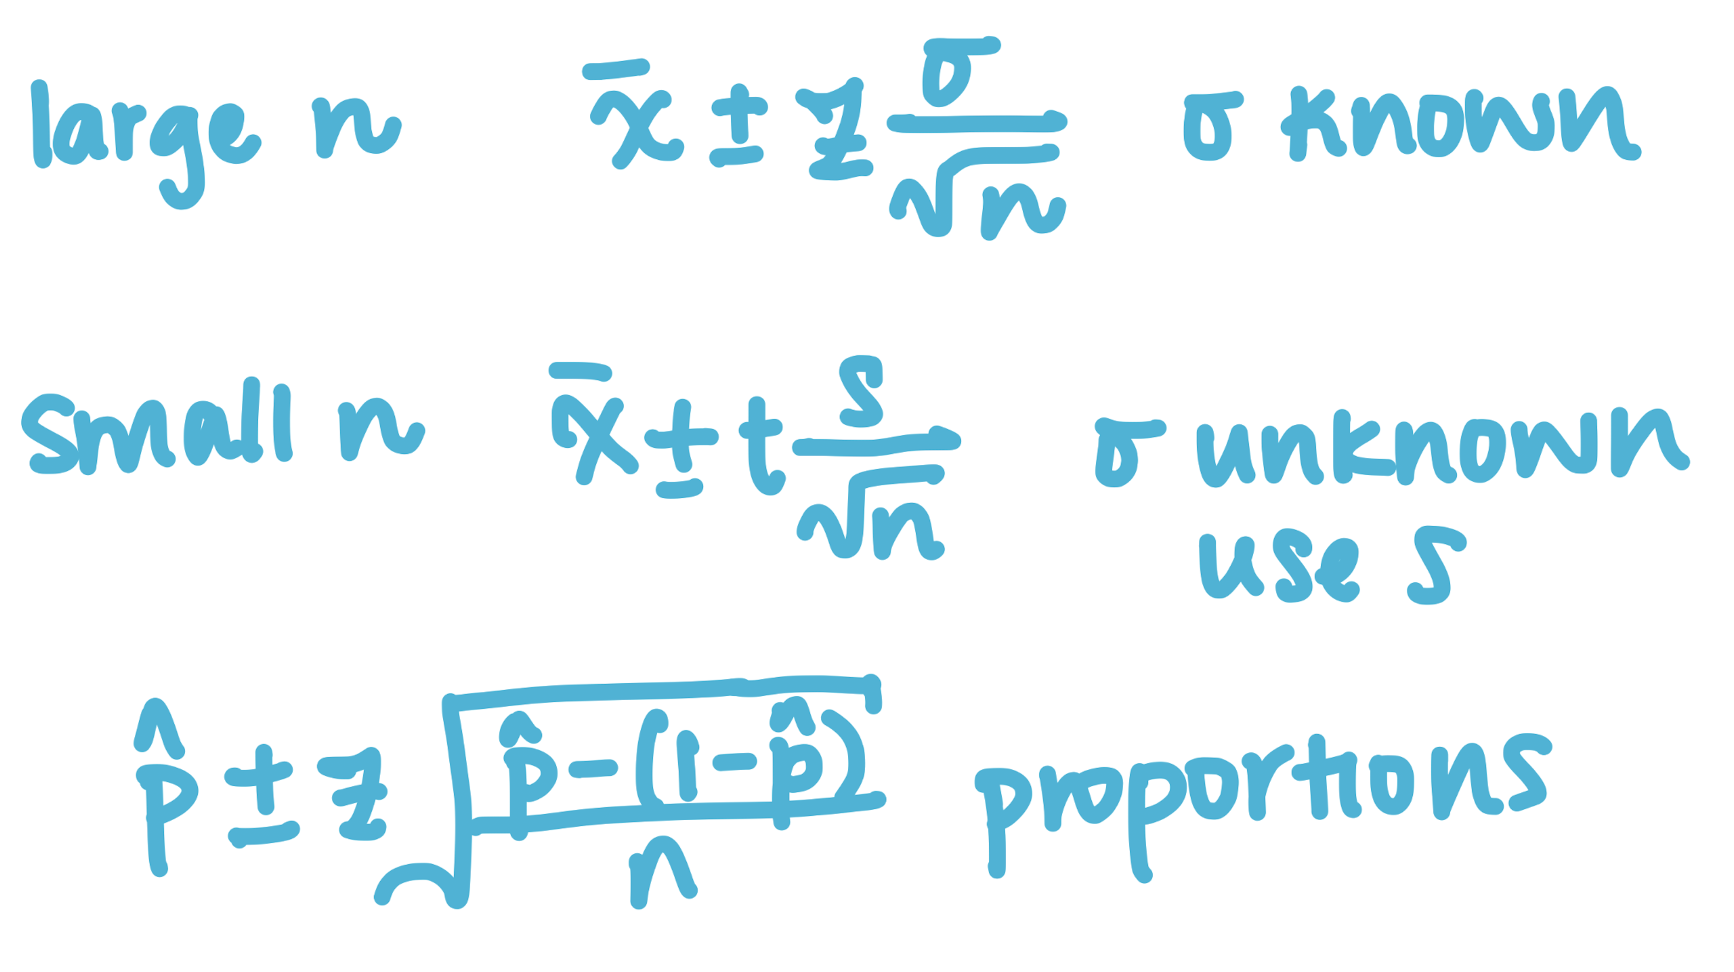 large n x̄ ± z σ/√n σ known
small n x̄ ± t s/√n σ unknown
use s
p̂ ± z √(p̂-(1-p̂)/n) proportions